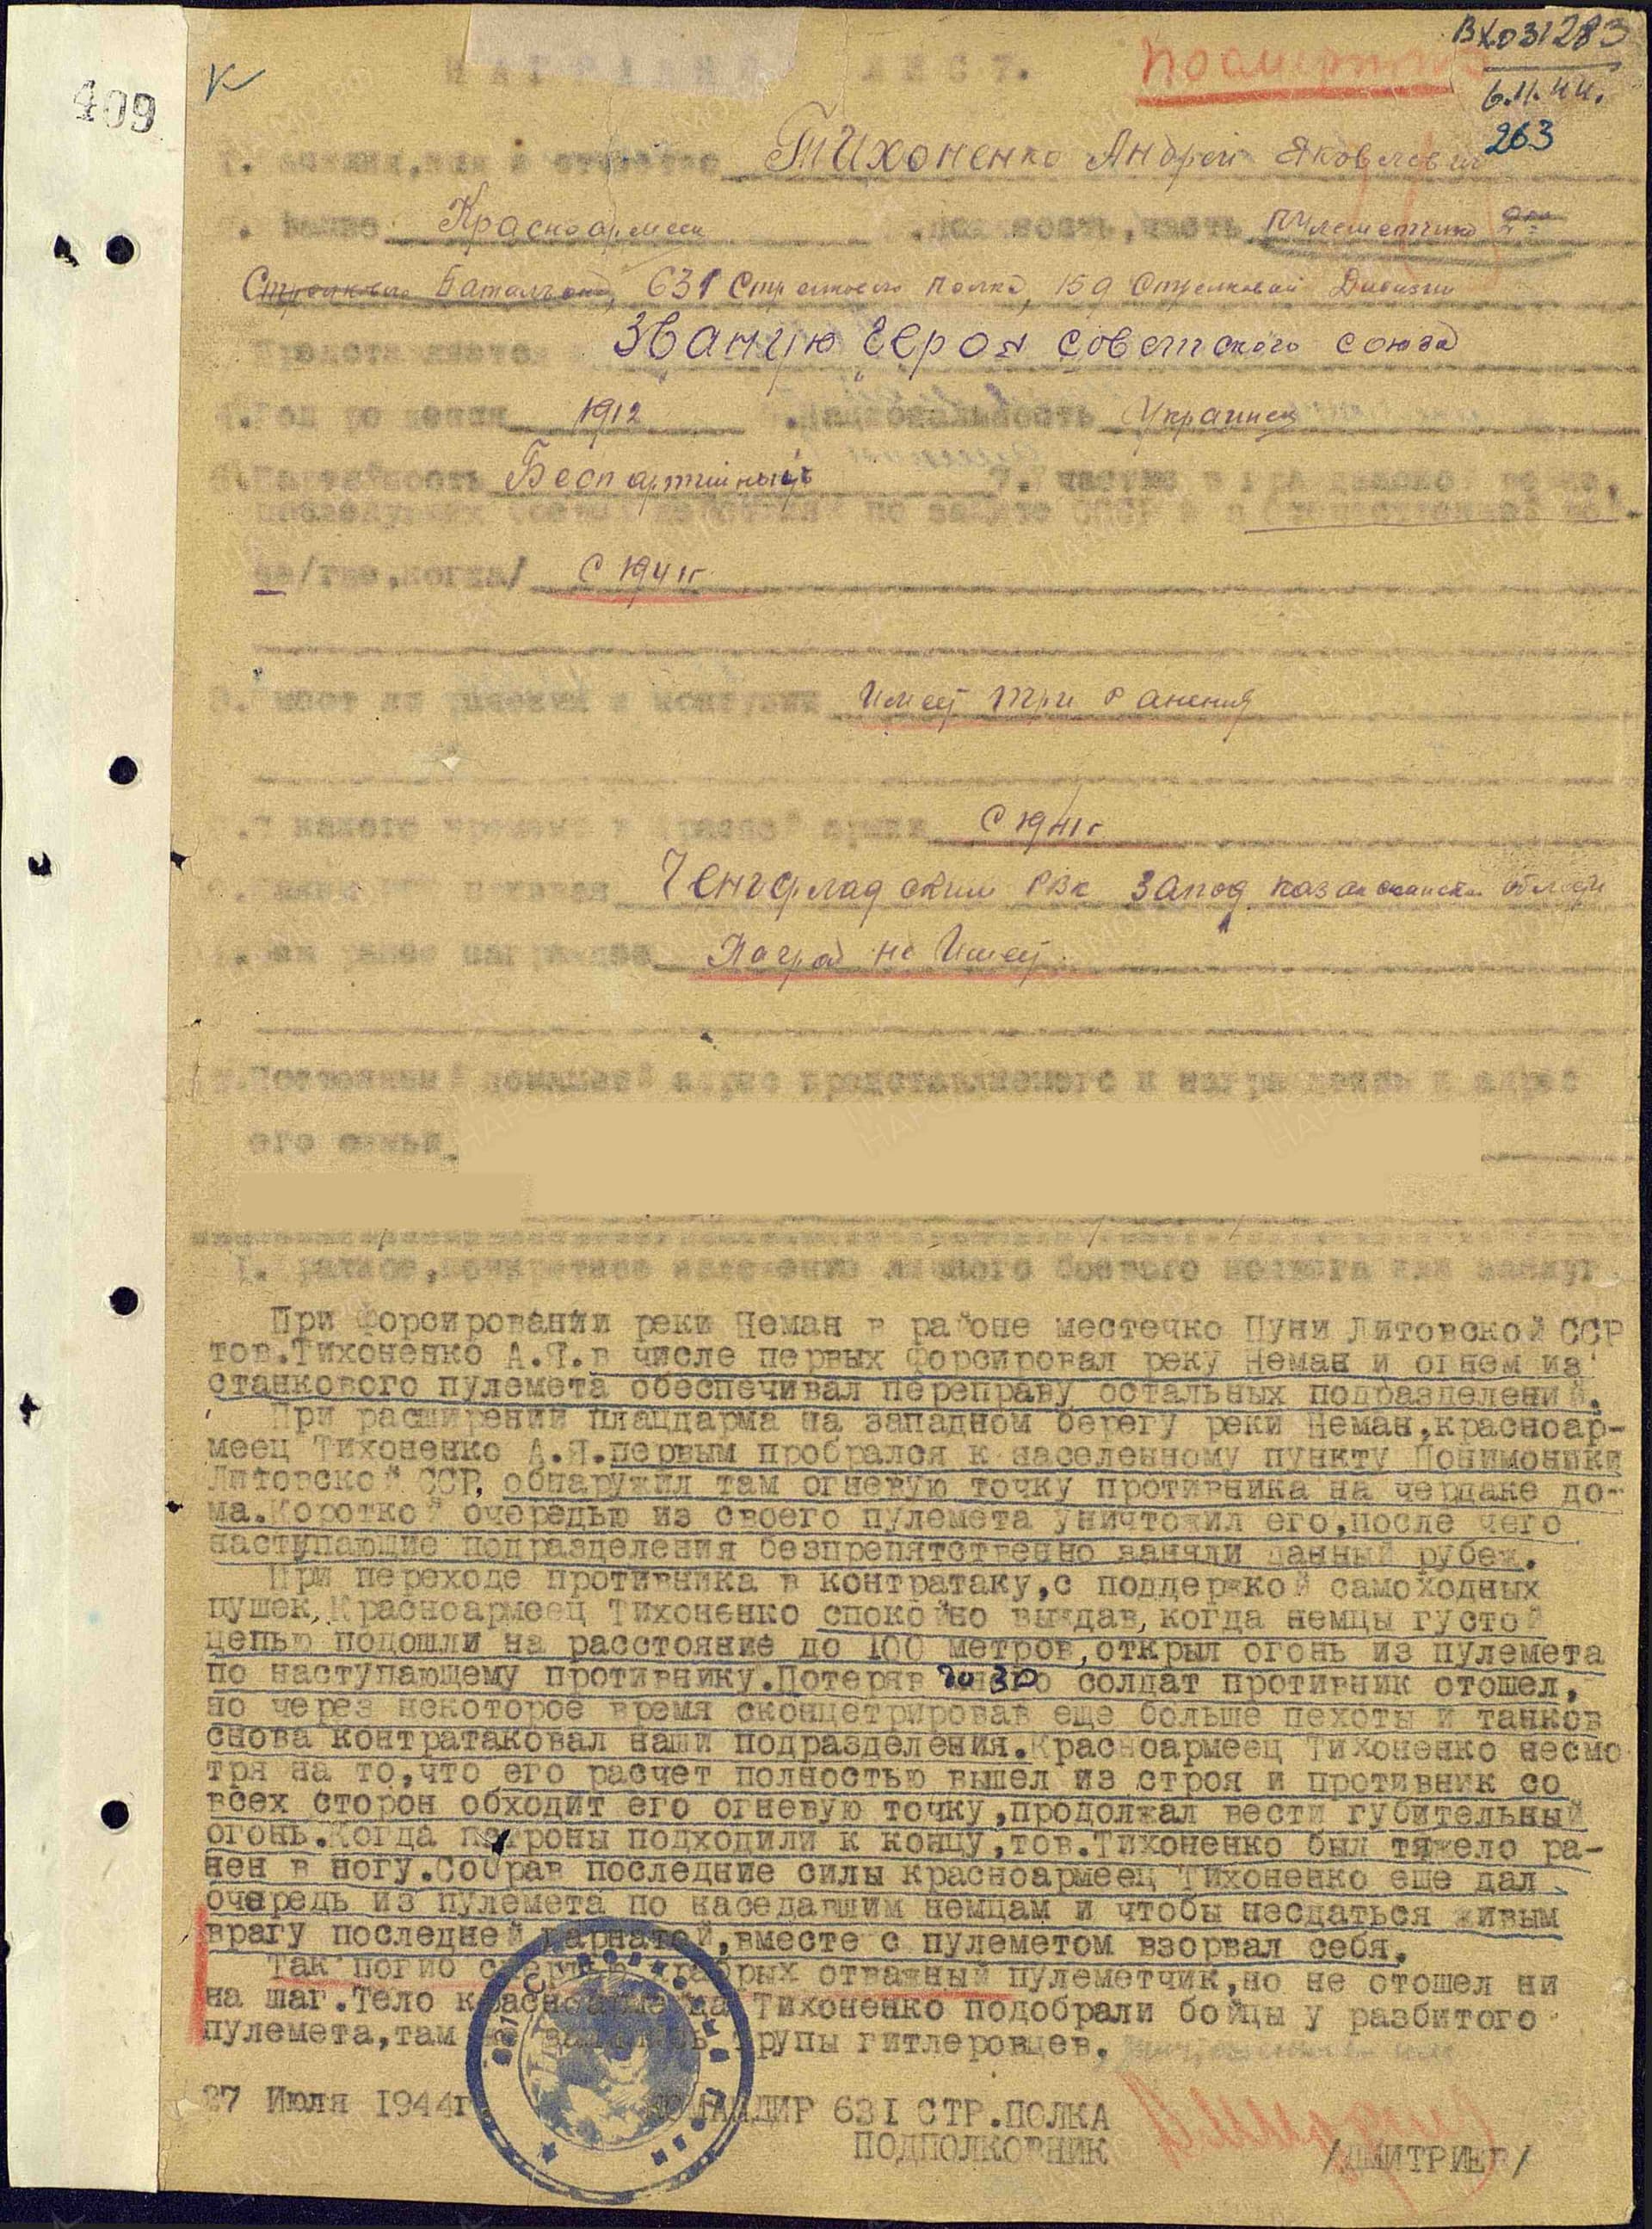 409
К
НАГРАДНОЙ ЛИСТ.
посмертно
Вх031283
6.11.44.
263
1. Фамилия, имя и отчество Тихоненко Андрей Яковлевич
Звание Красноармеец должность, часть пулеметчик 2го
Стрелкового Баталъона, 631 Стрелкового полка, 159 Стрелковой Дивизии
Представляется Званию Героя Советского союза
4. Год рождения 1912 5. Национальность Украинец
6. Партийность Беспартийный 7. Участие в гражданской войне,
последующих боевых действиях по защите СССР и в отечественной вой-
не/где, когда/ с 1941г
8. Имеет ли ранения и контузии Имеет три ранения
9. С какого времени в Красной армии С 1941г
10. Каким РВК призван Ченгрладским РВК Запод. казакстанской области
11. Чем ранее награжден Наград не Имеет.
12. Постоянный домашний адрес представляемого к награждению и адрес
его семьи.
I. Краткое, конкретное изложение личного боевого подвига или заслуг
При форсировании реки Неман в районе местечко Пуни Литовской ССР
тов.Тихоненко А.Я.в числе первых форсировал реку Неман и огнем из
станкового пулемета обеспечивал переправу остальных подразделений.
При расширении плацдарма на западном берегу реки Неман,красноар-
меец Тихоненко А.Я.первым пробрался к населенному пункту Понимоники
Литовской ССР, обнаружил там огневую точку противника на чердаке до-
ма.Короткой очередью из своего пулемета уничтожил его,после чего
наступающие подразделения безпрепятственно заняли данный рубеж.
При переходе противника в контратаку,с поддержкой самоходных
пушек, Красноармеец Тихоненко спокойно выждав, когда немцы густой
цепью подошли на расстояние до 100 метров,открыл огонь из пулемета
по наступающему противнику.Потеряв до 30 солдат противник отошел,
но через некоторое время сконцетрировав еще больше пехоты и танков
снова контратаковал наши подразделения.Красноармеец Тихоненко несмо
тря на то,что его расчет полностью вышел из строя и противник со
всех сторон обходит его огневую точку,продолжал вести губительный
огонь.Когда патроны подходили к концу,тов.Тихоненко был тяжело ра-
нен в ногу.Собрав последние силы красноармеец Тихоненко еще дал
очередь из пулемета по наседавшим немцам и чтобы несдаться живым
врагу последней гарнатой,вместе с пулеметом взорвал себя.
Так погиб смертью храбрых отважный пулеметчик,но не отошел ни
на шаг.Тело красноармейца Тихоненко подобрали бойцы у разбитого
пулемета,там трупы гитлеровцев.
27 Июля 1944г.
КОМАНДИР 631 СТР.ПОЛКА
ПОДПОЛКОВНИК /ДМИТРИЕВ/